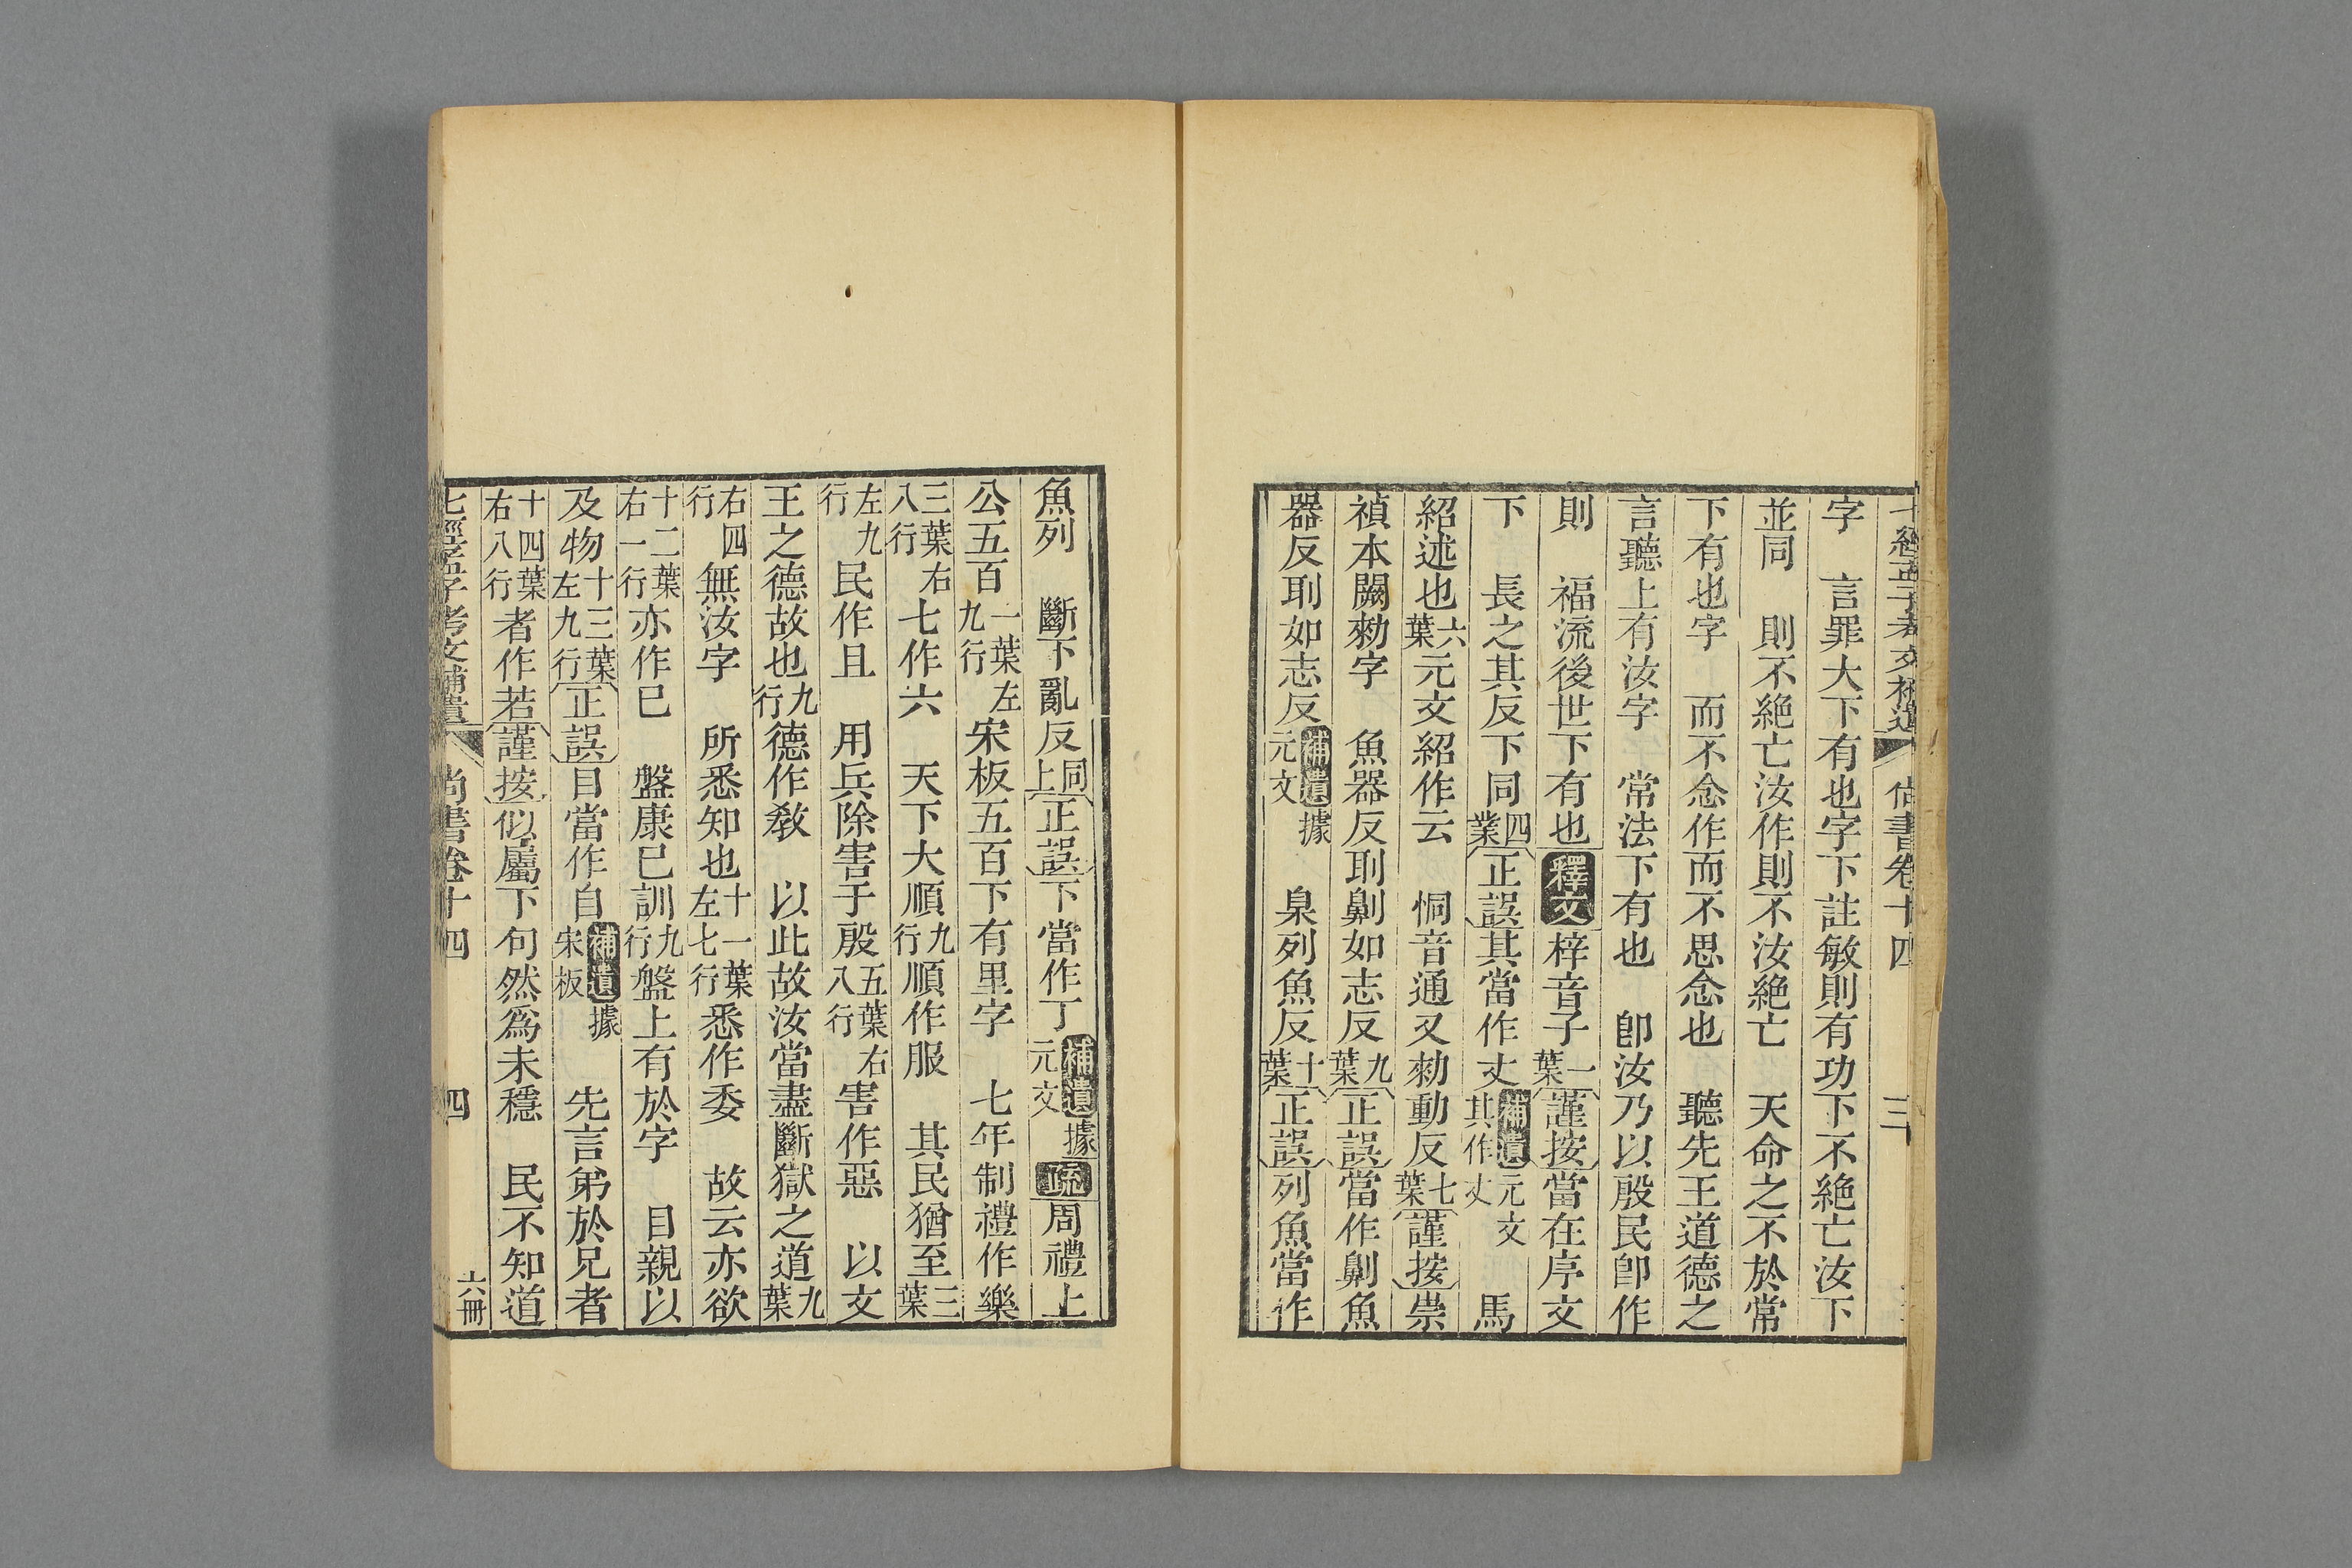 七經孟子考文補遺 尚書卷十四 三
字 言罪大下有也字下註敏則有功下不絶亡汝下
並同 則不絶亡汝作則不汝絶亡 天命之不於常
下有也字 而不念作而不思念也 聽先王道德之
言聽上有汝字 常法下有也 卽汝乃以殷民卽作
則 福流後世下有也釋文梓音子一葉謹按當在序文
下 長之其反下同四業正誤其當作丈補遺元文其作丈 馬
紹述也六葉元文紹作云 恫音通又勑動反七葉謹按崇
禎本闕勑字 魚器反刵劓如志反九葉正誤當作劓魚
器反刵如志反補遺據元文 臬列魚反十葉正誤列魚當作
魚列 斷下亂反同上正誤下當作丁補遺據元文疏周禮上
公五百一葉左九行宋板五百下有里字 七年制禮作樂
三葉右八行七作六 天下大順九行順作服 其民猶至三葉
左九行民作且 用兵除害于殷五葉右八行害作惡 以文
王之德故也九行德作敎 以此故汝當盡斷獄之道九葉
右四行無汝字 所悉知也十一葉左七行悉作委 故云亦欲
十二葉右一行亦作巳 盤康巳訓九行盤上有於字 目親以
及物十三葉左九行正誤目當作自補遺據宋板 先言弟於兄者
十四葉右八行者作若謹按似屬下句然爲未穩 民不知道
七經孟子考文補遺 尚書卷十四 四 六冊